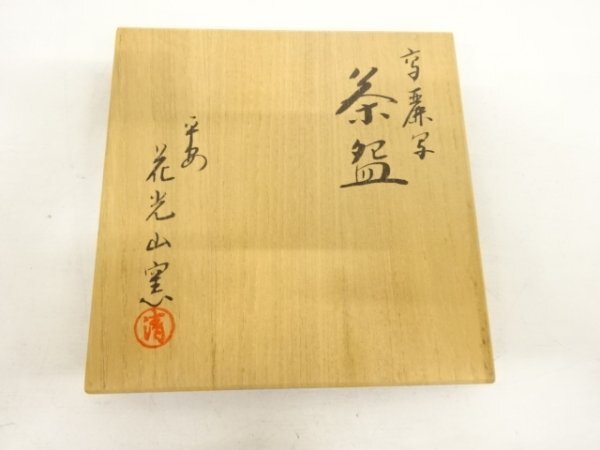 高麗写
茶盌
平安
花光山窯
清